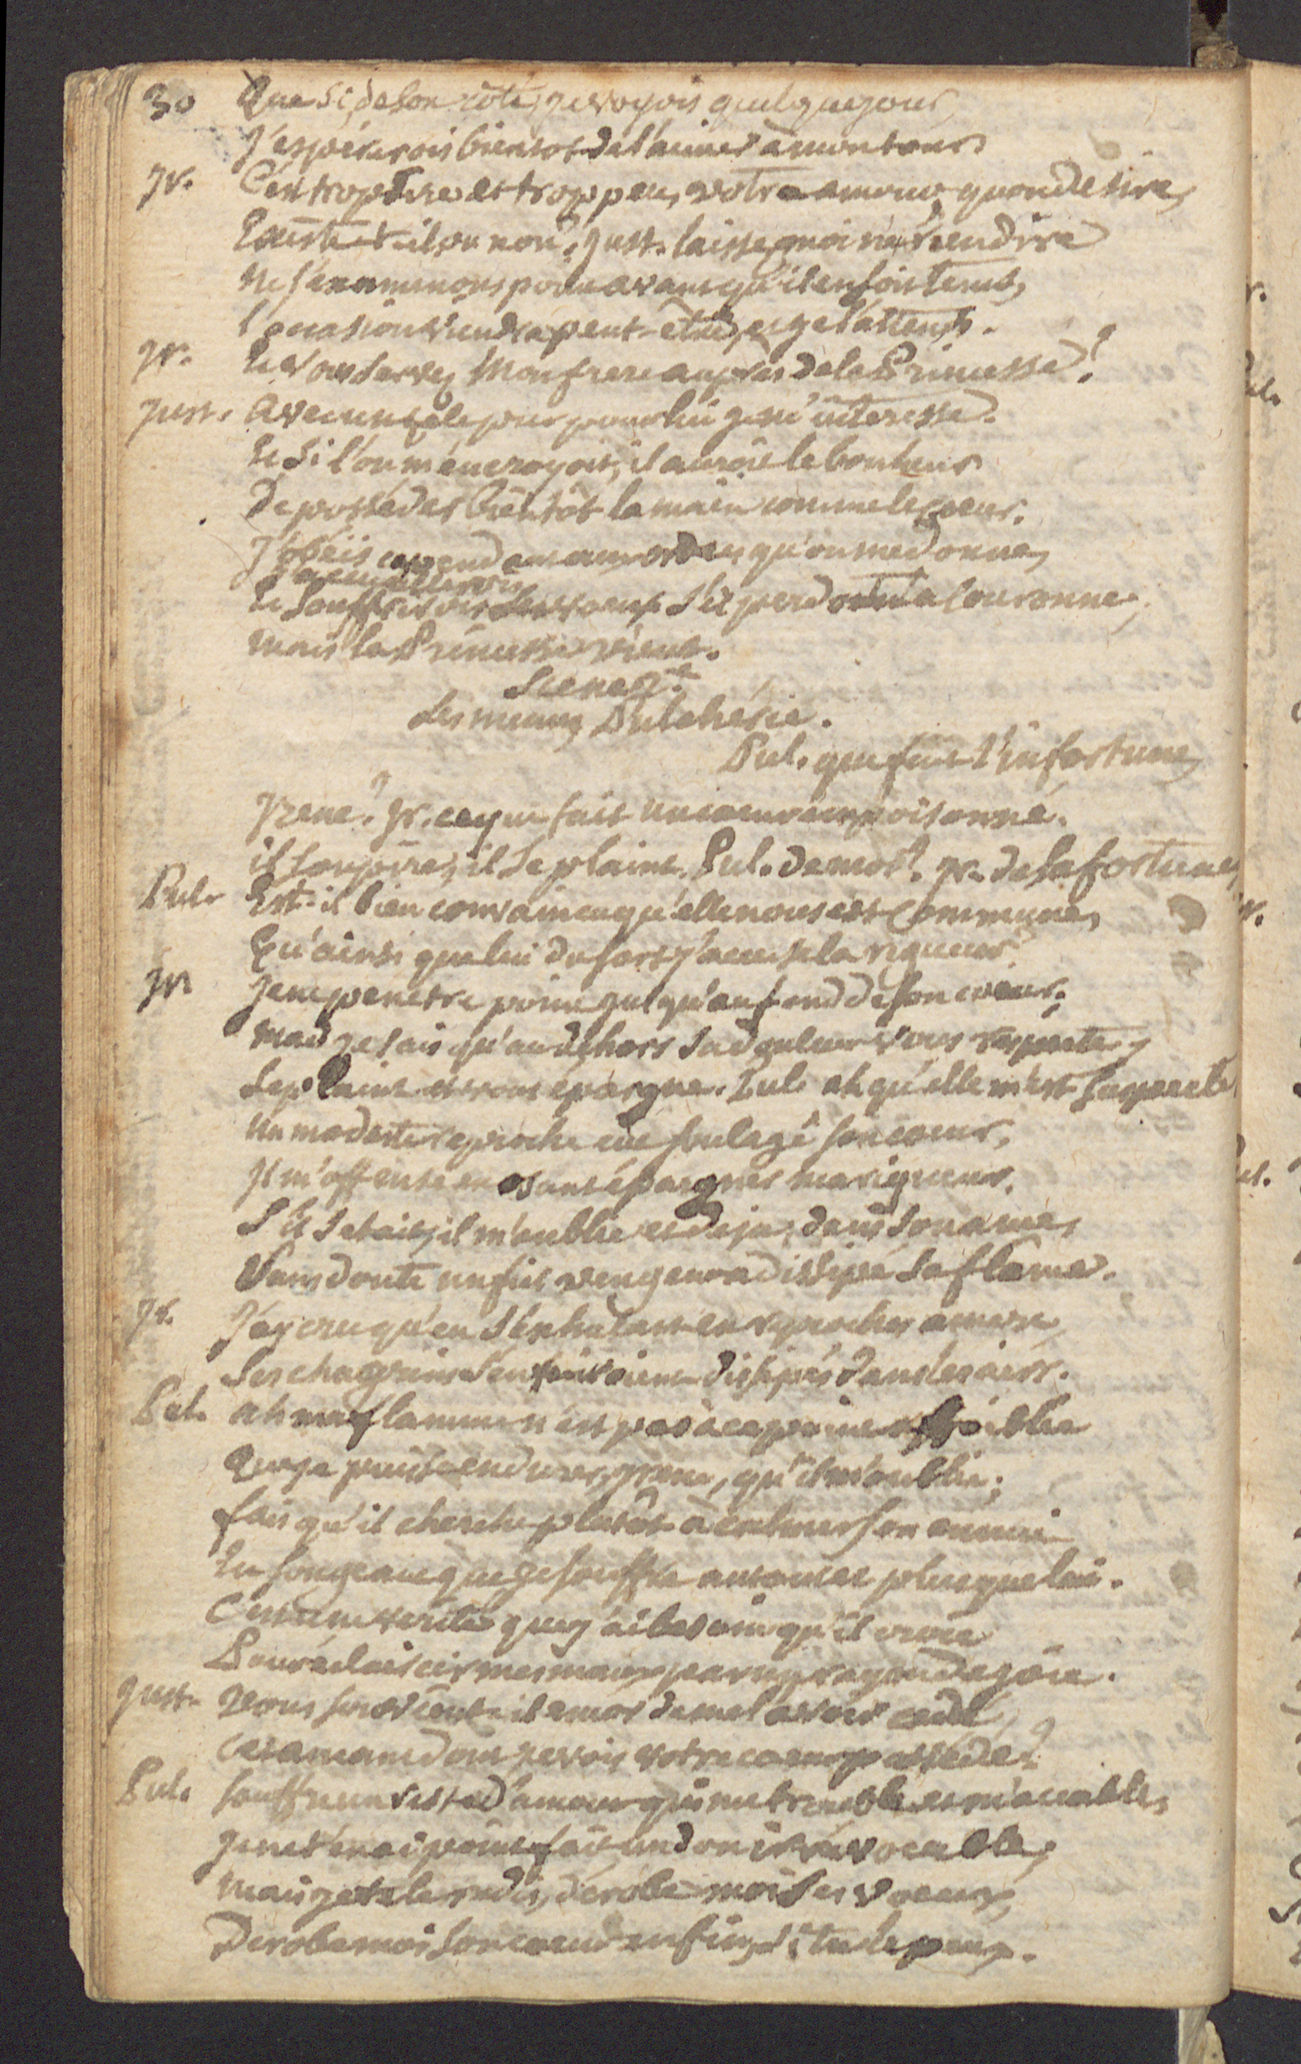 30 Que si, de son côté, je voyois quelque jour
J'espérerois bientot de l'aimer à mon tour
Ir. C'est trop dire et trop peu, votre amour, qu'on desire,
Existe-t-il ou non? Just. laissez moi n'en rien dire
Ne l'examinons point avant qu'il en soit tems,
l'occasion viendra peut-être, et je l'attends.
Ir. Et vous servez mon frere auprès de la Princesse?
Just. Avec un zele pur pour lui je m'interesse.
Et si l'on m'en croyoit, il auroit le bonheur
De posseder bientôt la main comme le coeur.
J'obéis cependant aux ordres qu'on me donne,
J'accueillerois
Et souffrirois ses voeux s'il perdoit la couronne,
mais la Princesse vient.
Scene 2.e
Les memes, Pulcherie.
Pul. que fait l'infortuné,
Irene? Ir. ce que fait un coeur empoisonné.
il soupire, il se plaint. Pul. de moi? Ir. de sa fortune,
Pul. Est-il bien convaincu qu'elle nous est commune,
Qu'ainsi que lui du sort j'accuse la rigueur?
Ir. Je ne penetre point jusqu'au fond de son coeur;
mais je sais qu'au dehors sa douleur vous respecte,
Se plaint et vous épargne. Pul. ah qu'elle m'est suspecte
Un modeste reproche eut soulagé son coeur,
Il m'offense en osant épargner ma rigueur.
S'il se tait, il m'oublie et deja, dans son ame,
Sans doute un fiel vengeur a dissipé sa flame.
Ir. J'ay cru qu'en s'exhalant en reproches amers
Ses chagrins dissipés dans les airs.
Pul. ah ma flamme n'est pas à ce point affoiblie
Que je puisse endurer, Irene, qu'il m'oublie;
fais qu'il cherche plutôt à calmer son ennui
En songeant que je souffre autant et plus que lui.
C'est une verité que j'ai besoin qu'il croie
Pour éclaircir mes maux par un rayon de joie.
Just. Vous souvient-il encor de me l'avoir cedé,
Cet amant dont je vois votre coeur possedé?
Pul. Souffre un reste d'amour qui me trouble et m'accable,
Je ne t'en ai point fait un don irrévocable,
mais je te le redis, dérobe moi ses voeux,
Derobe moi son coeur enfin, si tu le peux.